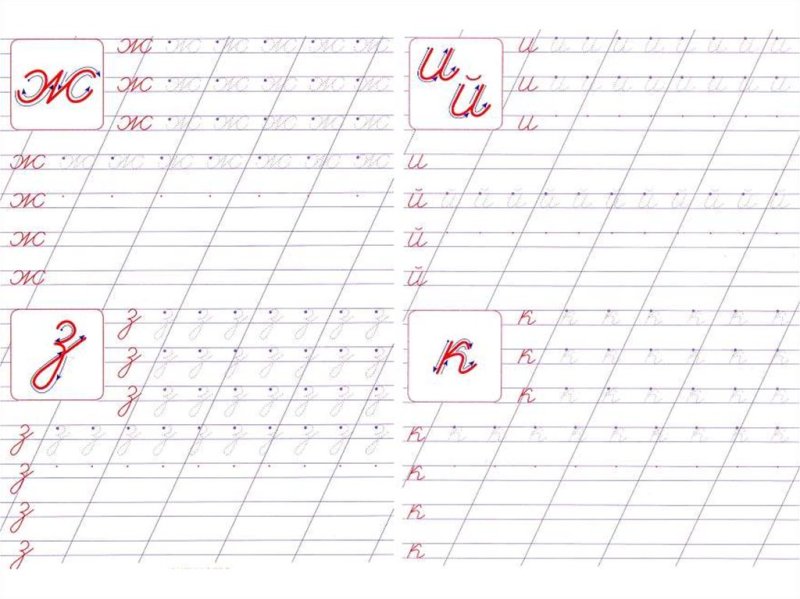 ж
ж ж ж ж ж ж
ж ж ж ж ж ж
ж ж ж ж ж ж
ж ж ж ж ж ж ж ж
ж
ж
ж
з
з з з з з з з з
з з з з з з з з
з з з з з з з з
з з з з з з з з з з з
з
з
з
и й
и и и и и и и и и
и и и и и и и и и
и
и
й й й й й й й й й й й й
й
й
к
к к к к к к к
к к к к к к к
к к к к к к к
к к к к к к к к к к
к
к
к